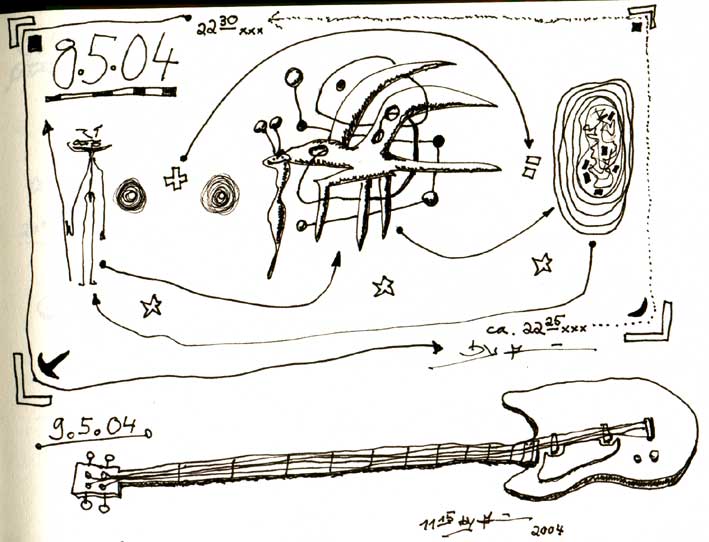 22 30 xxx
8.5.04
ca. 22 25 xxx
9.5.04
11 15 by
2004